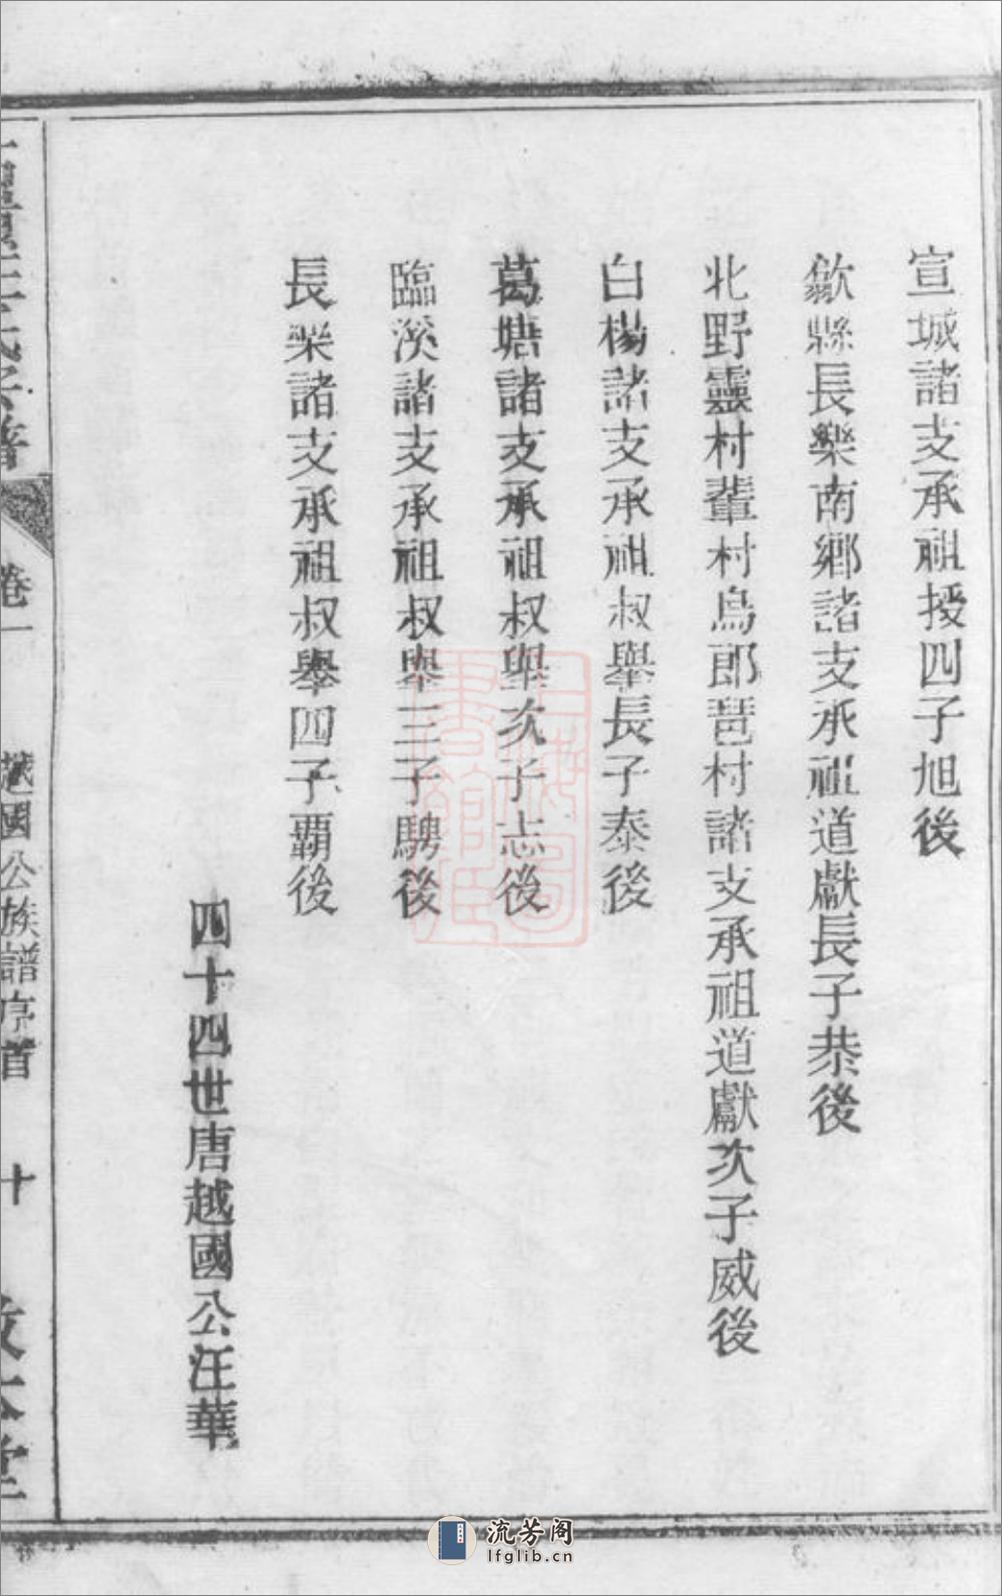 宣城諸支承祖授四子旭後
歙縣長樂南鄉諸支承祖道獻長子恭後
北野靈村輩村烏郎琶村諸支承祖道獻次子威後
白楊諸支承祖叔舉長子泰後
葛塘諸支承祖叔舉次子志後
臨溪諸支承祖叔舉三子騁後
長樂諸支承祖叔舉四子覇後
四十四世唐越國公汪華
卷一
越國公族譜序首
十
上海圖書館藏
流芳阁
lfglib.cn